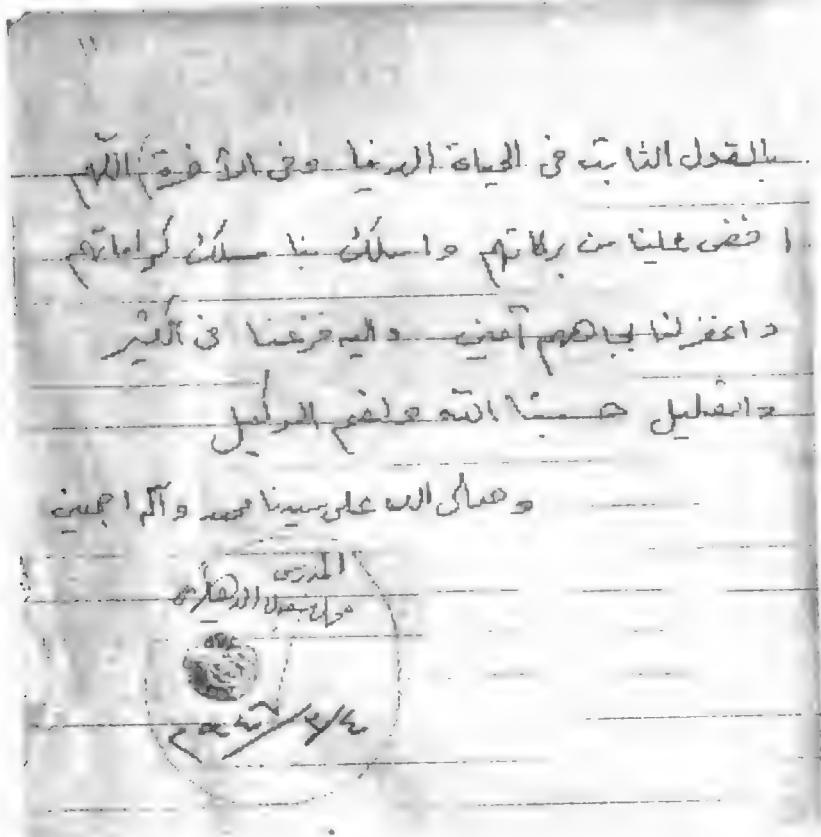 بالقول الثابت في الحياة الدنيا وفي الآخرة اللهم
افض علينا من بركاتهم واسلك بنا مسلك كراماتهم
واغفر لنا بجاههم آمين واليه فزعنا في الكثير
والقليل حسبنا الله ونعم الوكيل
وصلى الله على سيدنا محمد وآله اجمعين